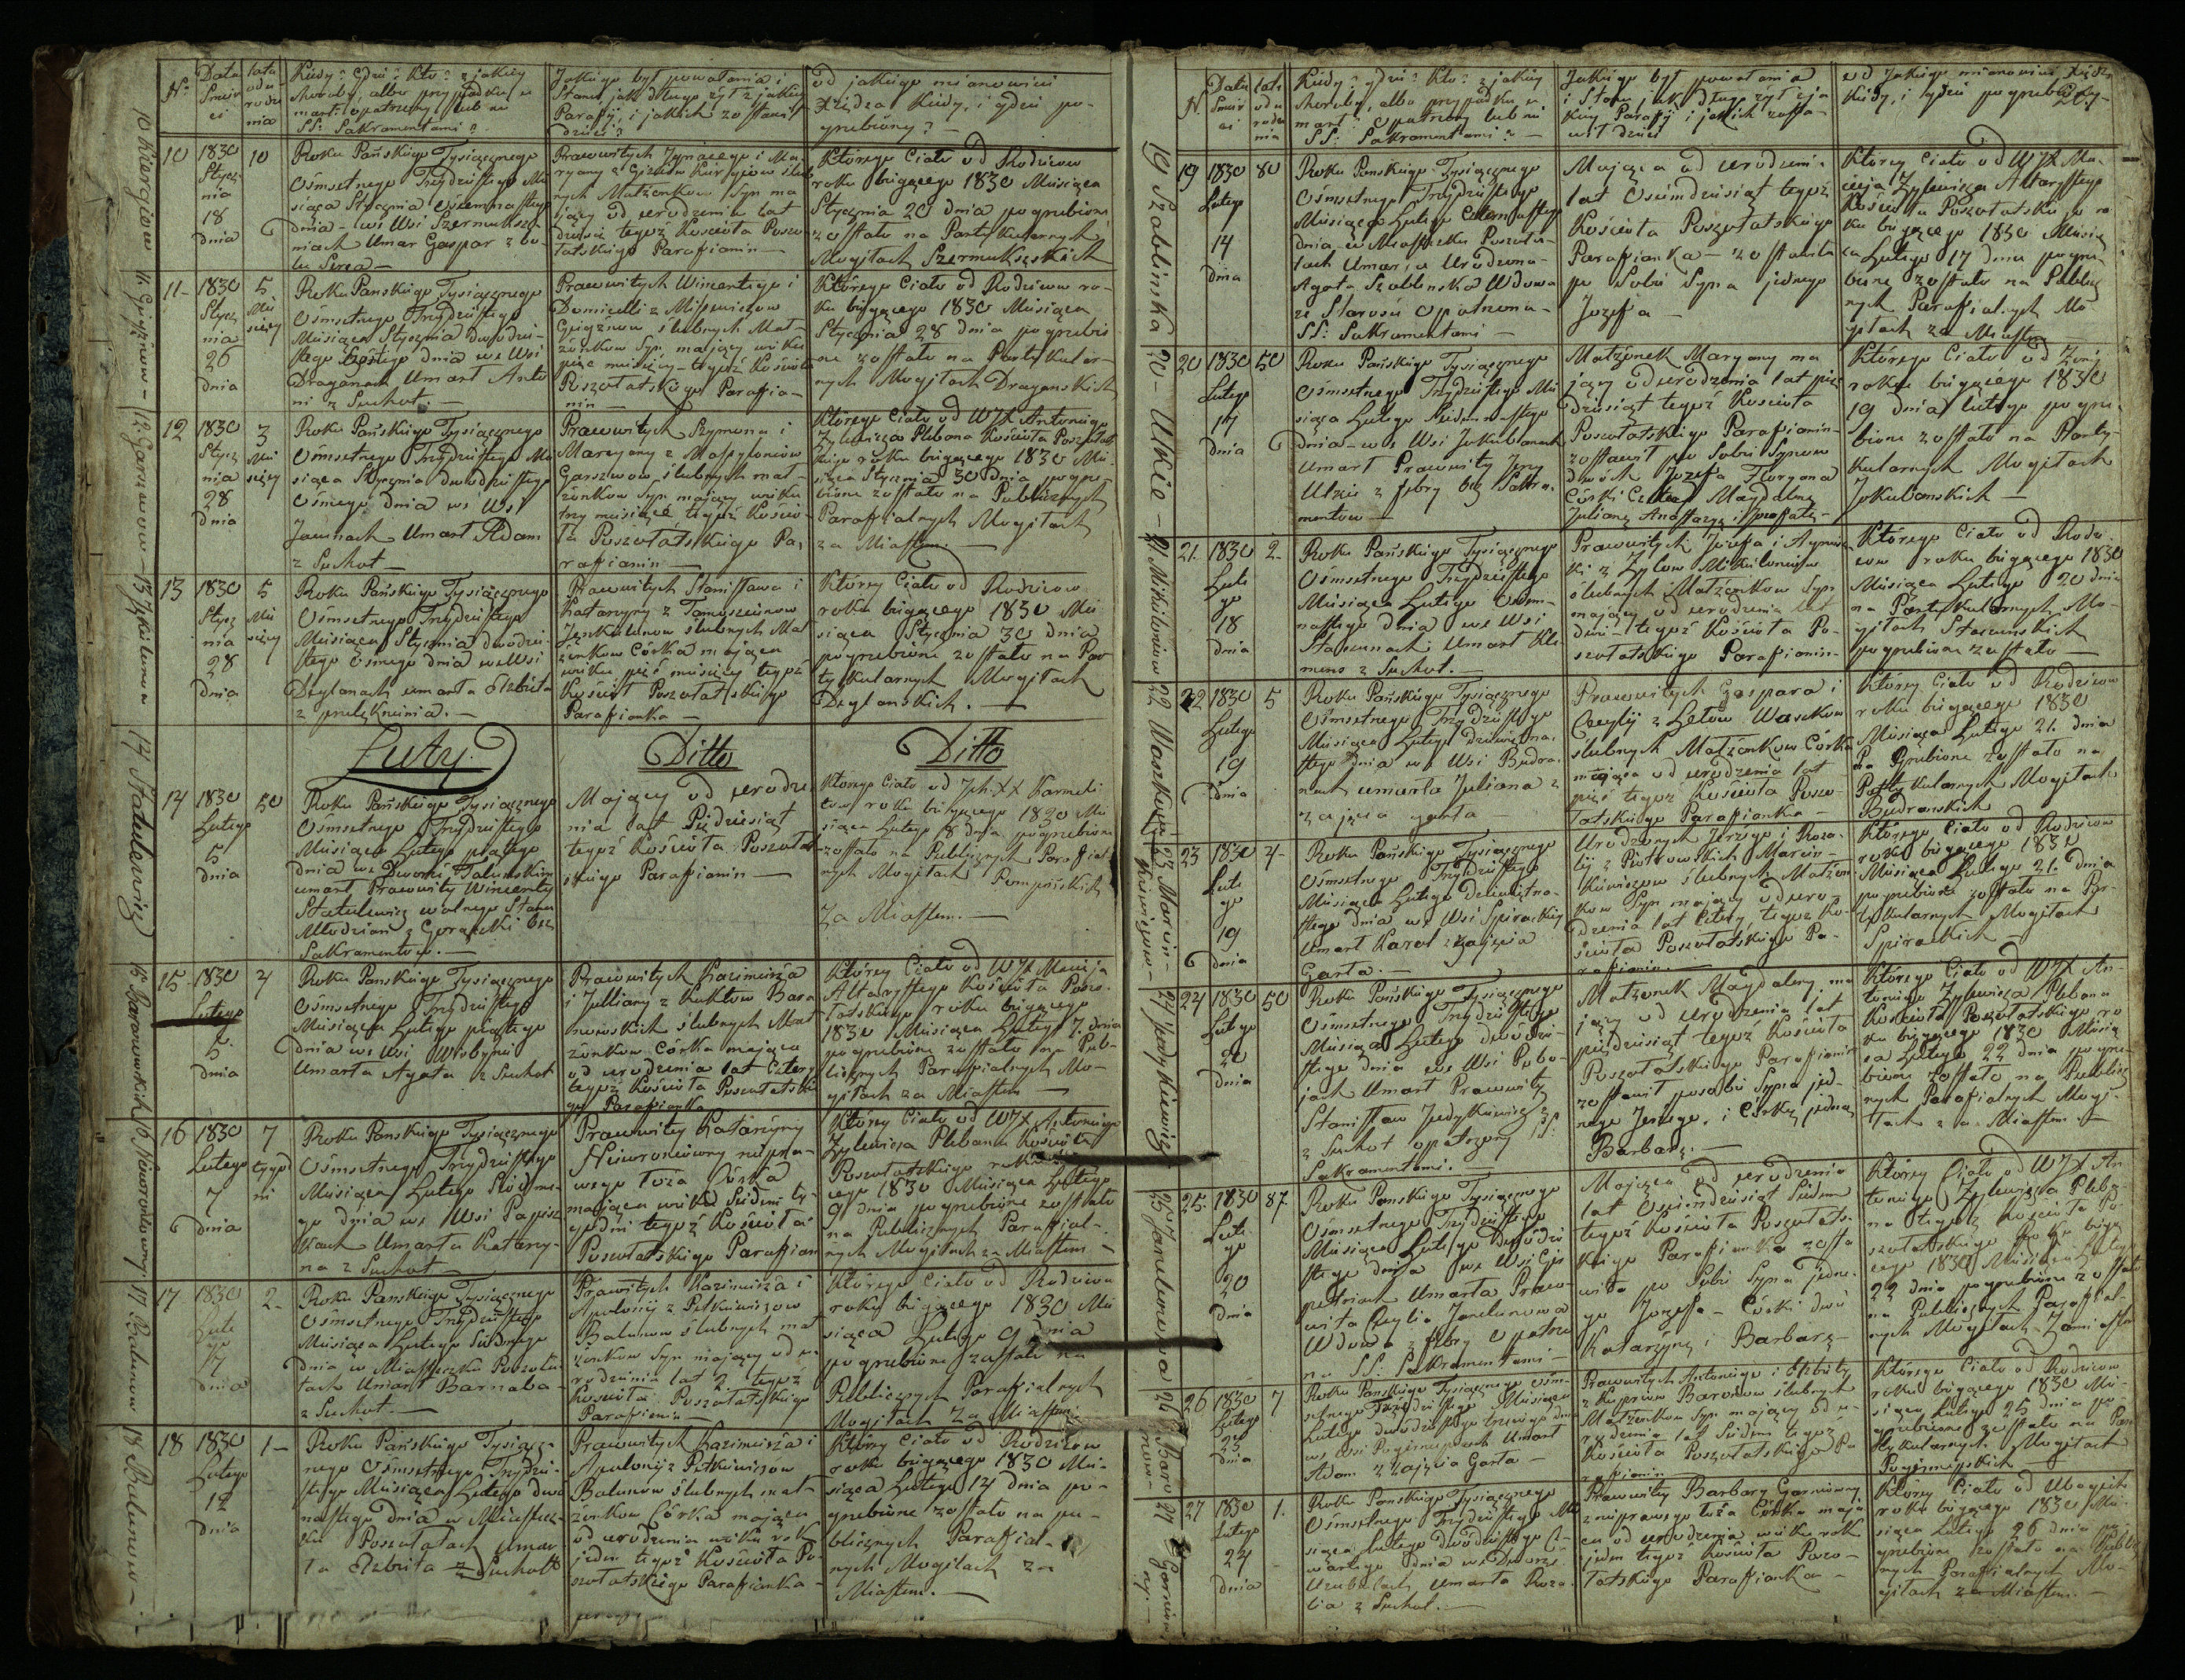 N:
Data Śmierci
lata od urodzenia
Kiedy? Gdzie? Kto? z jakiey
choroby, albo przypadku u
marł: opatrzony lub nie
SS: Sakramentami?
Jakiego był powołania i
Stanu, jak długo żył z jakiey
Parafij, i jakich zostawił
dzieci?
od jakiego mianowicie
Xiędza kiedy, i gdzie po-
grzebiony? —
10 Kiergiów
10
1830
Stycz
nia
18
dnia
10
Roku Pańskiego Tysiącznego
Ośmsetnego Trzydziestego Mie
siąca Stycznia osiemnastego
dnia - we Wsi Szermuksz
niach Umar Gaspar z bo
lu Serca —
Prawowitych Ignacego i Ma
ryany
nych Małżonków Syn ma
jący od urodzenia lat
dziesięć tegoż Kościoła Poszo
łatskiego Parafianin —
Którego Ciało od Rodziców
roku biegącego 1830 Miesiąca
Stycznia 20 dnia pogrzebione
zostało na Partykularnych
Mogiłach Szermukszskich
11 -
1830
Stycz
nia
26
dnia
5
Mie
sięcy
Roku Pańskiego Tysiącznego
Ośmsetnego Trzydziestego
Miesiąca Stycznia dwudzie-
stego szóstego dnia we Wsi
Draganach Umarł Anto
ni z Suchot. —
Prawowitych Wincentego i
Domicelli z
ślubnych Mał-
żonków Syn mający wieku
pięć miesięcy - tegoż Kościoła
Poszołatskiego Parafia-
nin —
Którego Ciało od Rodziców ro-
ku biegącego 1830 Miesiąca
Stycznia 28 dnia pogrzebio
ne zostało na Partykular-
nych Mogiłach Draganskich
12 Garszwow
12
1830
Stycz
nia
28
dnia
3
Mie
sięcy
Roku Pańskiego Tysiącznego
Ośmsetnego Trzydziestego Mie
siąca Stycznia dwudziestego
Ośmego dnia we Wsi
Jawnach Umarł Adam
z Suchot —
Prawowitych Szymona i
Maryany z
Garszwow ślubnych mał-
żonków Syn mający wieku
trzy miesiące tegoż Kościo-
ła Poszołatskiego Pa-
rafianin —
Którego Ciało od WJX Antoniego
Żylewicza Plebana Kościoła Poszołat
skiego roku biegącego 1830 Mie-
siąca Stycznia 30 dnia pogrze-
bione zostało na Publicznych
Parafialnych Mogiłach
za Miastem. —
13
1830
Stycz
nia
28
dnia
5
Mie
sięcy
Roku Pańskiego Tysiącznego
Ośmsetnego Trzydziestego
Miesiąca Stycznia dwudzie-
stego ósmego dnia we Wsi
Deglanach umarła Elżbieta
z
Prawowitych Stanisława i
Katarzyny z
ślubnych Mał
żonków Córka mająca
wieku pięć miesięcy tegoż
Kościoł Poszołatskiego
Parafianka —
Którey Ciało od Rodziców
roku biegącego 1830 Mie
siąca Stycznia 30 dnia
pogrzebione zostało na Par
tykularnych Mogiłach
Deglanskich. —
Luty.
Ditto
Ditto
14 Statulewicz
14
1830
Lutego
5
dnia
50
Roku Pańskiego Tysiącznego
Ośmsetnego Trzydziestego
Miesiąca Lutego piątego
dnia we Dworze
umarł Prawowity Wincenty
Statulewicz wolnego Stanu
Młodzian z Gorączki bez
Sakramentow. —
Mający od urodze
nia lat Pięćdziesiąt
tegoż Kościoła Poszołat
skiego Parafianin —
Ktorego Ciało od XX Karmeli
tow roku biegącego 1830 Mie
siąca Lutego 8 dnia pogrzebione
zostało na Publicznych Parafial
nych Mogiłach Pompiańskich
Za Miastem. —
15 Baranowskich
15
1830
Lutego
5.
dnia
4
Roku Pańskiego Tysiącznego
Ośmsetnego Trzydziestego
Miesiąca Lutego piątego
dnia we Wsi
Umarła Agata z Suchot
Prawowitych Kazimierza
i Julliany z Kuklow Bara
nowskich ślubnych Mał
żonkow Córka mająca
od urodzenia lat Cztery
tegoż Kościoła Poszołatski
go Parafianka
Którey Ciało od WJX Macieja
Altarystego Kościoła Poszo-
łatskiego roku biegącego
1830 Miesiąca Lutego 7. dnia
pogrzebione zostało na Pub-
licznych Parafialnych Mo-
giłach za Miastem —
16
1830
Lutego
7
dnia
7
tygod
ni
Roku Pańskiego Tysiącznego
Ośmsetnego Trzydziestego
Miesiąca Lutego Siódme-
go dnia we Wsi
Umarła Katarzy-
na z Suchot —
Prawowity Katarzyny
niepra-
wego łoża Córka
mająca wieku Siedem ty-
godni tegoż Kościoła
Poszołatskiego Parafian
Którey Ciało od WJX Antoniego
Żylewicza Plebana Kościoła
Poszołatskiego roku
cego 1830 Miesiąca Lutego
9 dnia pogrzebione zostało
na Publicznych Parafial-
nych Mogiłach za Miastem —
17 Balunow
17
1830
Lute
go
7
dnia
2 -
Roku Pańskiego Tysiącznego
Ośmsetnego Trzydziestego
Miesiąca Lutego Siódmego
dnia w Miasteczku Poszoła-
tach Umarł Barnaba
z Suchot. —
Prawitych Kazimierza i
Apolonij z Petkiewiczow
Balunow ślubnych mał
żonkow Syn mający od u-
rodzenia lat 2 tegoż
Kościoła Poszołatskiego
Parafianin —
Którego Ciało od Rodziców
roku biegącego 1830 Mie
siąca Lutego 9 dnia
pogrzebione zostało na
Publicznych Parafialnych
Mogiłach Za Miastem
18 Balunow -
18
1830
Lutego
12
dnia
1 —
Roku Pańskiego Tysiącz-
nego Ośmsetnego Trzydzie-
stego Miesiąca Lutego dwu
nastego dnia w Miastecz-
ku Poszołatach Umar
ła Elżbieta z Suchott
Prawowitych Kazimierza i
Apolonij z Petkiewiczów
Balunów ślubnych mał-
żonkow Córka mająca
od urodzenia wieku rok
jeden tegoż Kościoła Po-
szołatskiego Parafianka -
Którey Ciało od Rodziców
roku biegącego 1830 Mie-
siąca Lutego 14 dnia po-
grzebione zostało na pu-
blicznych Parafial-
nych Mogiłach za
Miastem. —
N.
Data Śmierci
lat od urodzenia
Kiedy? gdzie? Kto? z jakiey
choroby, albo przypadku u
marł? opatrzony lub nie
SS: Sakramentami? —
Jakiego był powołania
i Stanu jak długo żył z ja
kiey Parafij i jakich zosta-
wił dzieci
od Jakiego mianowicie Xiędza
kiedy, i gdzie pogrzebiony -
19 Szablinska
19
1830
Lutego
14
dnia
80
Roku Pańskiego Tysiącznego
Ośmsetnego Trzydziestego
Miesiąca Lutego Czternastego
dnia w Miasteczku Poszoła-
tach Umarła Urodzona
Agata Szablinska Wdowa
ze Starości Opatrzona
SS: Sakramentami —
Mająca od urodzenia
lat Osiemdziesiąt tegoż
Kościoła Poszołatskiego
Parafianka - zostawiła
po Sobie Syna jednego
Jozefa —
Którey Ciało od WJX Ma-
cieja Żylewicza Altarystego
Kościoła Poszołatskiego ro
ku biegącego 1830 Miesią
ca Lutego 17 dnia pogrze
bione zostało na Publicz
nych Parafialnych Mo
giłach za Miastem
20 - Ulkie -
20
1830
Lutego
17
dnia
50
Roku Pańskiego Tysiącznego
Ośmsetnego Trzydziestego Mie
siąca Lutego Siedemnastego
dnia - we Wsi Jokubanach
Umarł Prawowity Jerzy
z febry bez Sakra-
mentow —
Małżonek Maryany ma
jący od urodzenia lat pięć
dziesiąt tegoż Kościoła
Poszołatskiego Parafianin -
zostawił po Sobie Synow
dwóch Jozefa Floryana
Córki Cztery Magdalenę
Julianę Anastazyę i Jozefatę -
Którego Ciało od Żony
roku biegącego 1830
19 dnia lutego pogrze-
bione zostało na Party-
kularnych Mogiłach
Jokubanskich —
21. Mikulionów
21.
1830
Lute
go
18
dnia
2 -
Roku Pańskiego Tysiącznego
Ośmsetnego Trzydziestego
Miesiąca Lutego Osiem-
nastego dnia we Wsi
Umarł Kle
mens z Suchot. —
Prawowitych Jozefa i Agniesz
ki z Zylow Mikulionów
ślubnych Małżonkow Syn
mający od urodzenia lat
dwie - tegoż Kościoła Po-
szołatskiego Parafianin -
Którego Ciało od Rodzi
cow roku biegącego 1830
Miesiąca Lutego 20 dnia
na Partykularnych Mo-
giłach
pogrzebione zostało —
22
1830
Lutego
19
dnia
5
Roku Pańskiego Tysiącznego
Ośmsetnego Trzydziestego
Miesiąca Lutego dziewiętna-
stego dnia we Wsi Budra-
nach umarła Juliana z
zajęcia garła —
Prawowitych Gaspara i
Cecylij z
ślubnych Małżonkow Córka
mająca od urodzenia lat
pięć tegoż Kościoła Poszo-
łatskiego Parafianka —
Którey Ciało od Rodzicow
roku biegącego 1830
Miesiąca Lutego 21. dnia
Po Grzebione zostało na
Partykularnych Mogiłach
Budranskich
23 Marcin-
kiewiczow -
23
1830
Lute
go
19
dnia
4 -
Roku Pańskiego Tysiącznego
Ośmsetnego Trzydziestego
Miesiąca Lutego Dziewiętna-
stego dnia we Wsi
Umarł Karol z zajęcia
Garła. —
Urodzonych Jerzego i Roza-
lij z Piotrowskich Marcin-
kiewiczow ślubnych Małżon
kow Syn mający od uro-
dzenia lat Cztery tegoż Ko-
ścioła Poszołatskiego Pa-
rafianin. —
Którego Ciało od Rodzicow
roku biegącego 1830
Miesiąca Lutego 21. dnia
pogrzebione zostało na Par-
tykularnych Mogiłach
24
1830
Lutego
20
dnia
50
Roku Pańskiego Tysiącznego
Ośmsetnego Trzydziestego
Miesiąca Lutego dwudzie-
stego dnia we Wsi
Umarł Prawowity
Stanisław
z Suchot opatrzony SS:
Sakramentami. —
Małżonek Magdaleny ma
jący od urodzenia lat
pięćdziesiąt tegoż Kościoła
Poszołatskiego Parafianin
zostawił po sobie Syna jed-
nego Jerzego, i Córkę jedną
Barbarę. —
Którego Ciało od WJX An-
toniego Żylewicza Plebana
Kościoła Poszołatskiego ro
ku biegącego 1830 Miesią
ca Lutego 22 dnia pogrze-
bione zostało na Publicz
nych Parafialnych Mogi-
łach za Miastem. —
25
25.
1830
Lute
go
20
dnia
87.
Roku Pańskiego Tysiącznego
Ośmsetnego Trzydziestego
Miesiąca Lutego dwudzie
stego dnia we Wsi
Umarła Prawo-
wita Cecylia
Wdowa z febry Opatrzo
na SS: Sakramentami —
Mająca od urodzenia
lat Osiemdziesiąt Siedem
tegoż Kościoła Poszołats-
kiego Parafianka zosta
wiła po Sobie Syna jedne-
go Jozefa - Córki dwie
Katarzynę i Barbarę -
Którey Ciało od WJX An-
toniego Żylewicza Pleba-
na tegoż Kościoła Po-
szołatskiego Roku biegą
cego 1830 Miesiąca Lutego
22 dnia pogrzebione zostało
na Publicznych Parafial-
nych Mogiłach Zamiastem
26
26
1830
Lutego
23
dnia
7
Roku Pańskiego Tysiącznego Ośm-
setnego Trzydziestego Miesiąca
Lutego dwudziestego trzeciego dnia
we Wsi Umarł
Adam z zajęcia Garła —
Prawowitych Antoniego i Elżbiety
z ślubnych
Małżonkow Syn mający od u-
rodzenia lat Siedem tegoż
Kościoła Poszołatskiego Pa
rafianin
Którego Ciało od Rodzicow
roku biegącego 1830 Mie-
siąca Lutego 25 dnia po
grzebione zostało na Par
tykularnych Mogiłach
27
27
1830
Lutego
24
dnia
1.
Roku Pańskiego Tysiącznego
Ośmsetnego Trzydziestego Mie
siąca Lutego dwudziestego Cz-
wartego dnia we Dworze
umarła Roza-
lia z Suchot. —
Prawowity Barbary
z nieprawego łoża Córka mają
ca od urodzenia wieku rok
jeden tegoż Kościoła Poszo-
łatskiego Parafianka —
Którey Ciało od
roku biegącego 1830 Mie-
siąca Lutego 26 dnia po-
grzebione zostało na Publicz
nych Parafialnych Mo-
giłach za Miastem. —